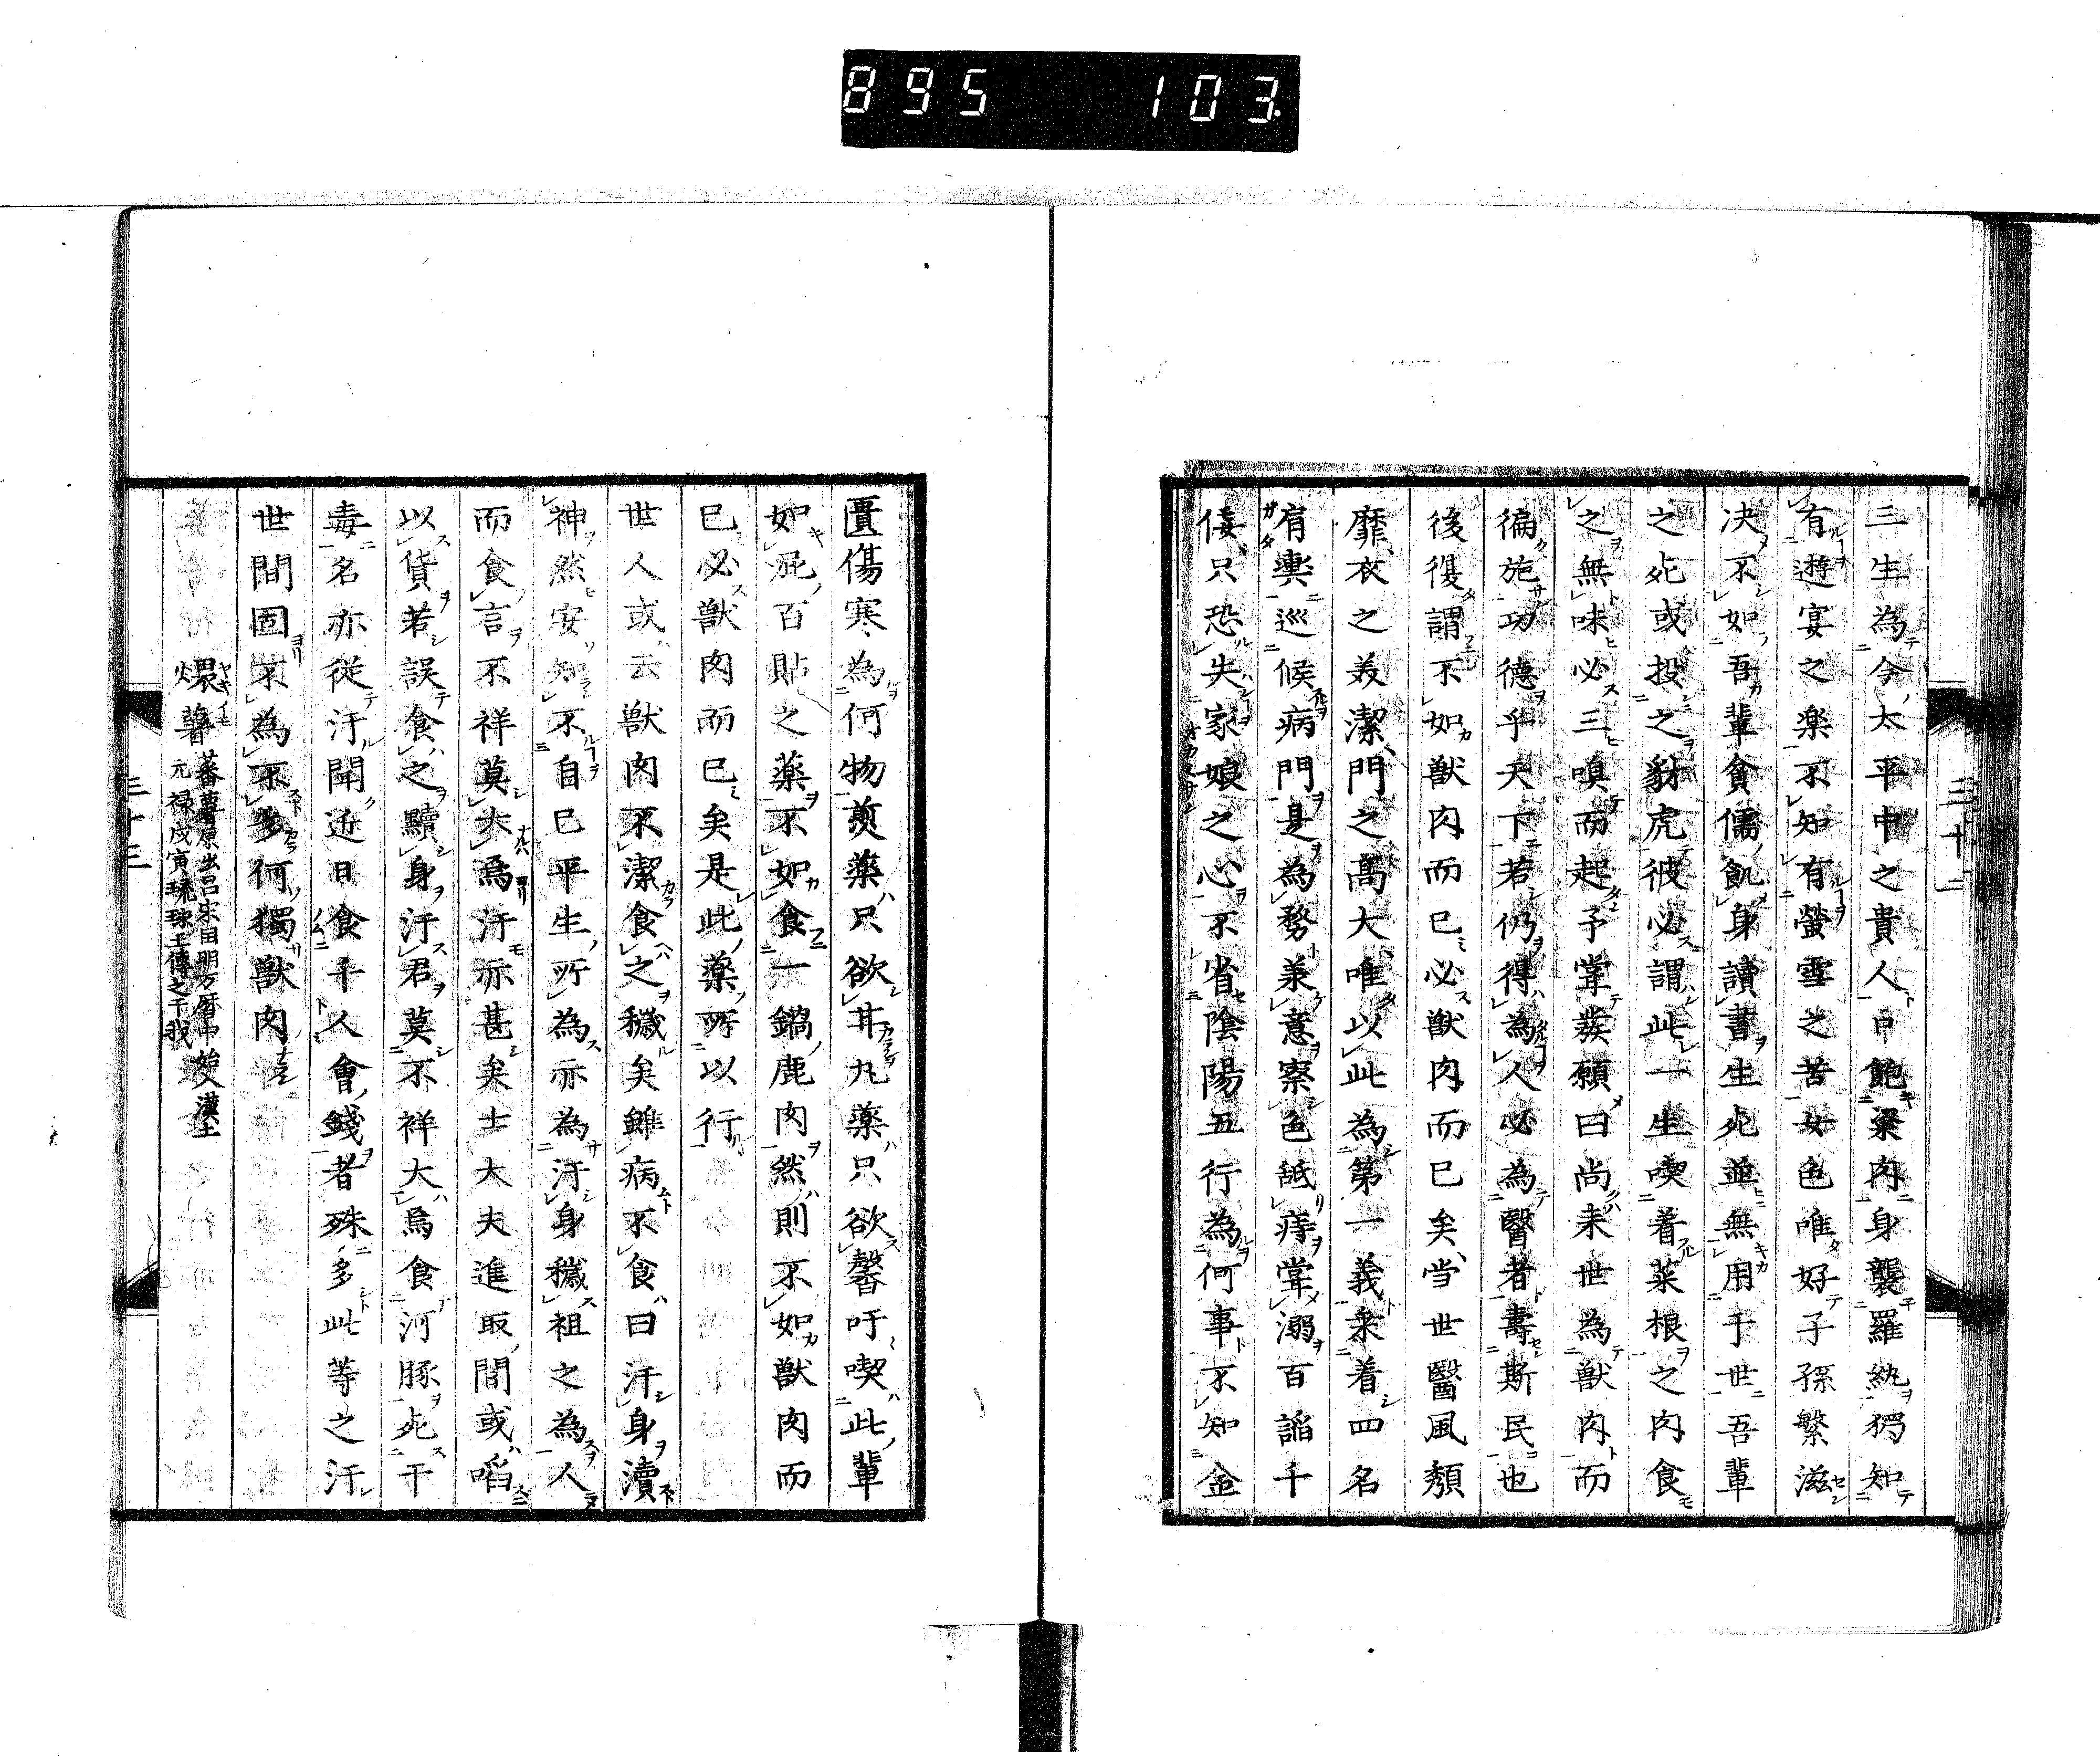 895 103
三十二
三生為今太平中之貴人口飽粱肉身襲羅紈独知
有遊宴之楽不知有螢雪之苦女色唯好子孫繁滋
决不如吾輩貪儒飢身讀書生死並無用于世吾輩
之死或投之豺虎彼必謂此一生喫着菜根之肉食
之無味必三嗅而起予掌蔟願曰尚来世為獣肉而
徧施功德乎天下若仍得為人必為醫者壽斯民也
後復謂不如獣肉而已必獣肉而已矣当世醫風頽
靡衣之美潔門之高大唯以此為第一義衆着四名
肩輿巡候病門是為務兼意察色舐痔掌溺百謟千
佞只恐失家娘之心不省陰陽五行為何事不知金
匱傷寒為何物煎薬只欲甘丸薬只欲馨吁喫此輩
如屁百貼之薬不如食一鍋鹿肉然則不如獣肉而
已必獣肉而已矣是此薬所以行
世人或云獣肉不潔食之穢矣雖病不食曰汙身瀆
神然安知不自己平生所為亦為汙身穢祖之為人
而食言不祥莫大焉汙亦甚矣士大夫進取間或啗
以貨若誤食之黷身汙君莫不祥大焉食河豚死于
毒名亦從汙聞近日食千人會錢者殊多此等之汙
世間固不為不多何獨獣肉
煨藷
蕃藷原出呂宋国明万暦中始入漢土
元禄戊寅琉球王傳之于我
三十三